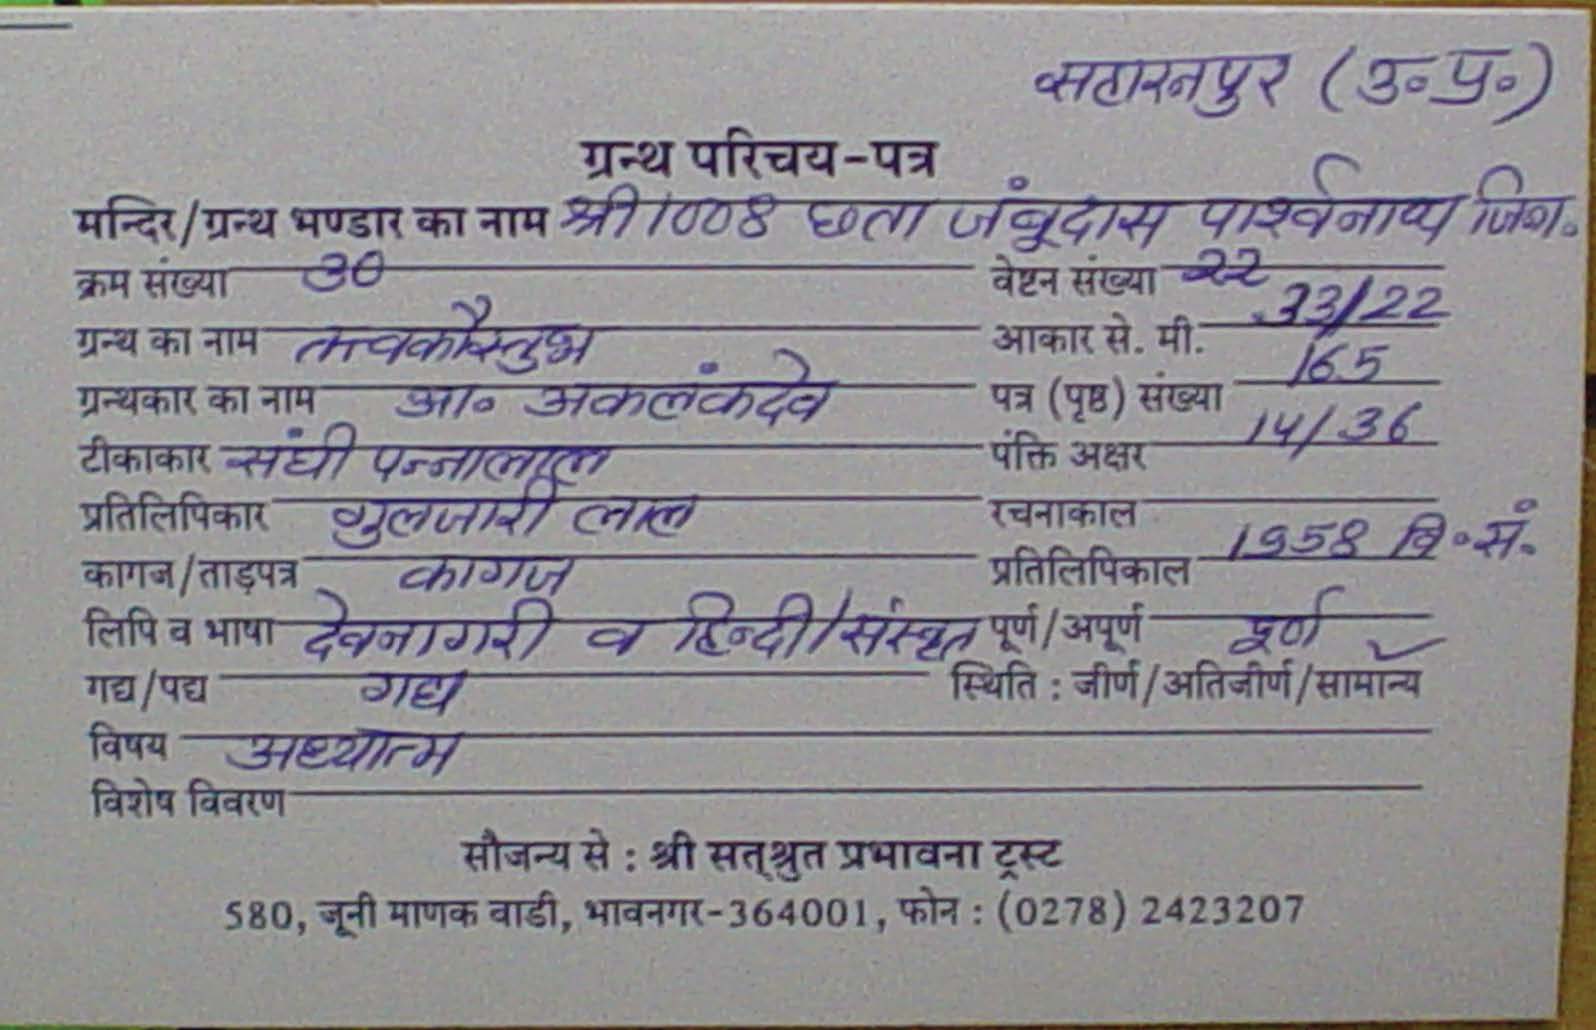 सहारनपुर (उ॰ प्र॰)
ग्रन्थ परिचय-पत्र
मन्दिर/ग्रन्थ भण्डार का नाम श्री 1008 छता जंबूदास पार्श्वनाथ जिन.
क्रम संख्या 30 वेष्टन संख्या 22
ग्रन्थ का नाम तत्त्वकौस्तुभ आकार से. मी. 33/22
ग्रन्थकार का नाम आ॰ अकलंकदेव पत्र (पृष्ठ) संख्या 165
टीकाकार संघी पन्नालाल पंक्ति अक्षर 14/36
प्रतिलिपिकार गुलजारी लाल रचनाकाल
कागज/ताड़पत्र कागज प्रतिलिपिकाल 1958 वि॰ सं॰
लिपि व भाषा देवनागरी व हिन्दी/संस्कृत पूर्ण/अपूर्ण पूर्ण
गद्य/पद्य गद्य स्थिति : जीर्ण/अतिजीर्ण/सामान्य ✓
विषय अध्यात्म
विशेष विवरण
सौजन्य से : श्री सत्श्रुत प्रभावना ट्रस्ट
580, जूनी माणक वाडी, भावनगर-364001, फोन : (0278) 2423207